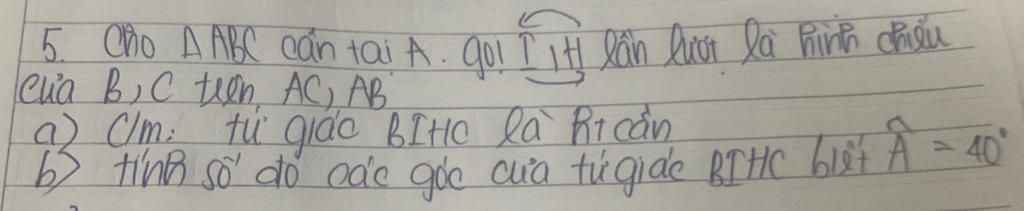 5. Cho Δ ABC cân tại A. gọi I, H lần lượt là hình chiếu
của B, C trên AC, AB
a) C/m: tứ giác BIHC là hT cân
b) tính số đo các góc của tứ giác BIHC biết Â = 40°